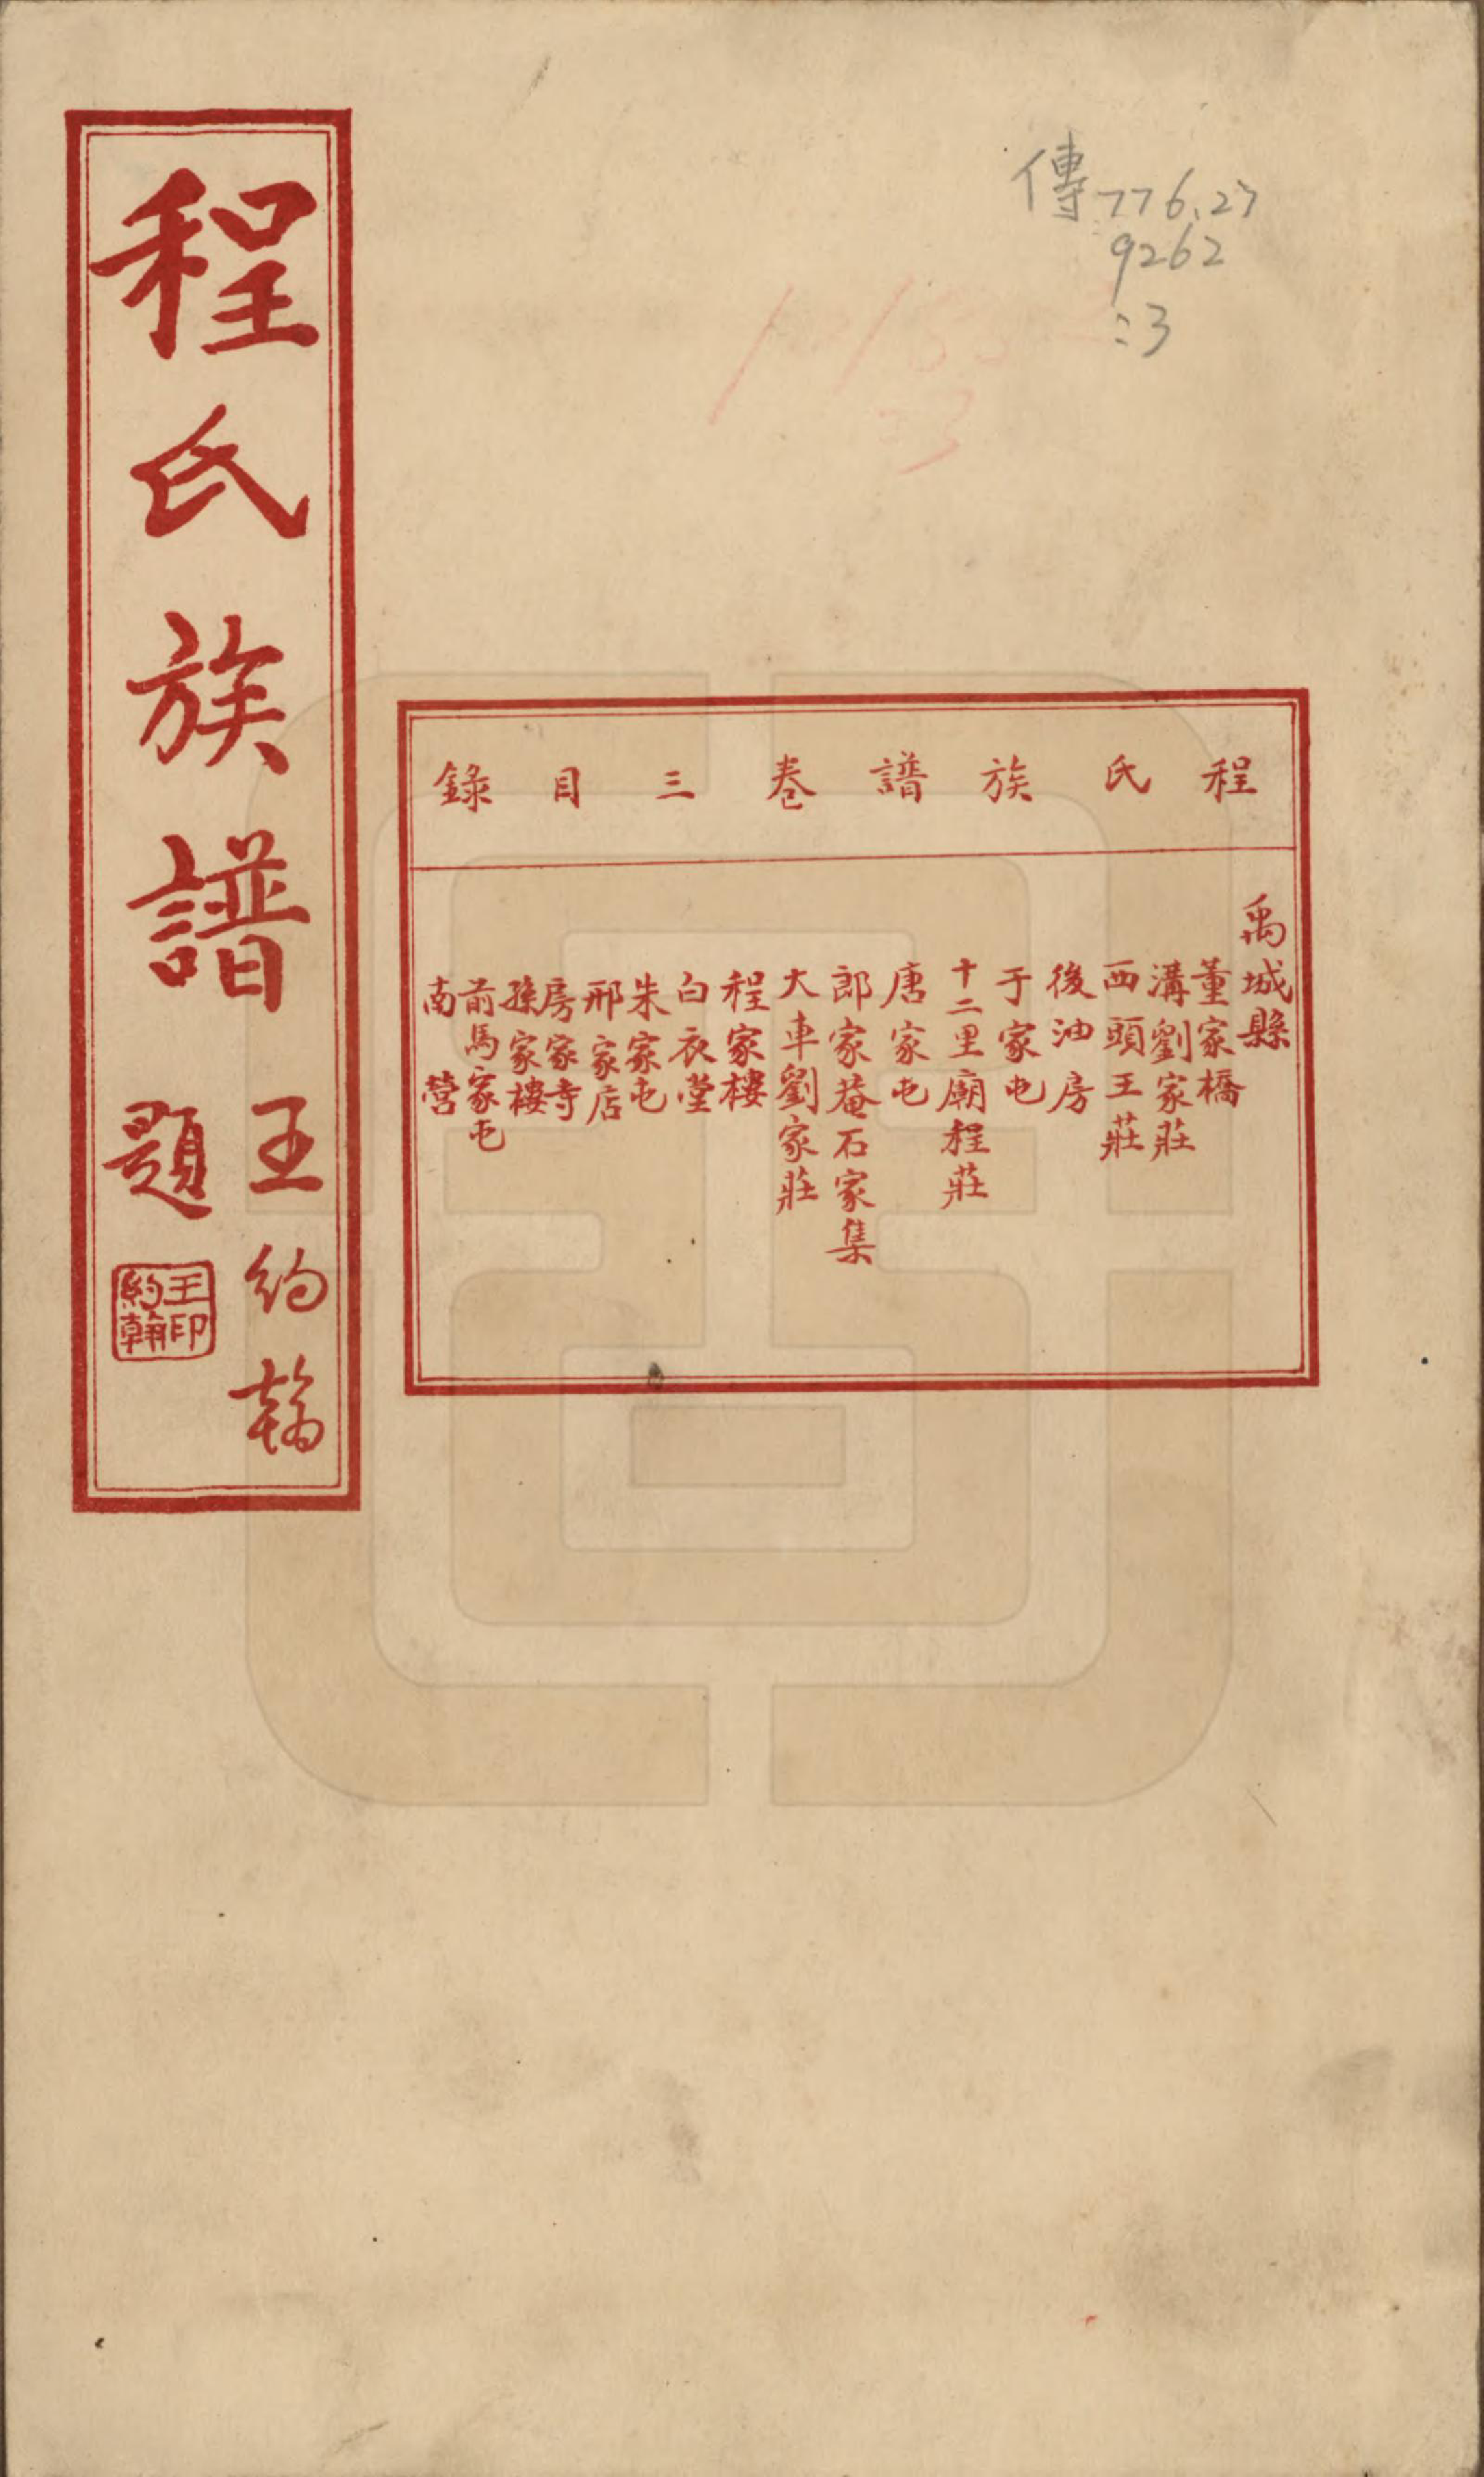 傳776.27
9262
:3
程氏族譜卷三目錄
禹城縣
董家橋
溝劉家莊
西頭王莊
後油房
于家屯
十二里廟程莊
唐家屯
郎家菴石家集
大車劉家莊
程家樓
白衣堂
朱家屯
邢家店
房家寺
孫家樓
前馬家屯
南營
程氏族譜
王約翰
題
王印
約翰